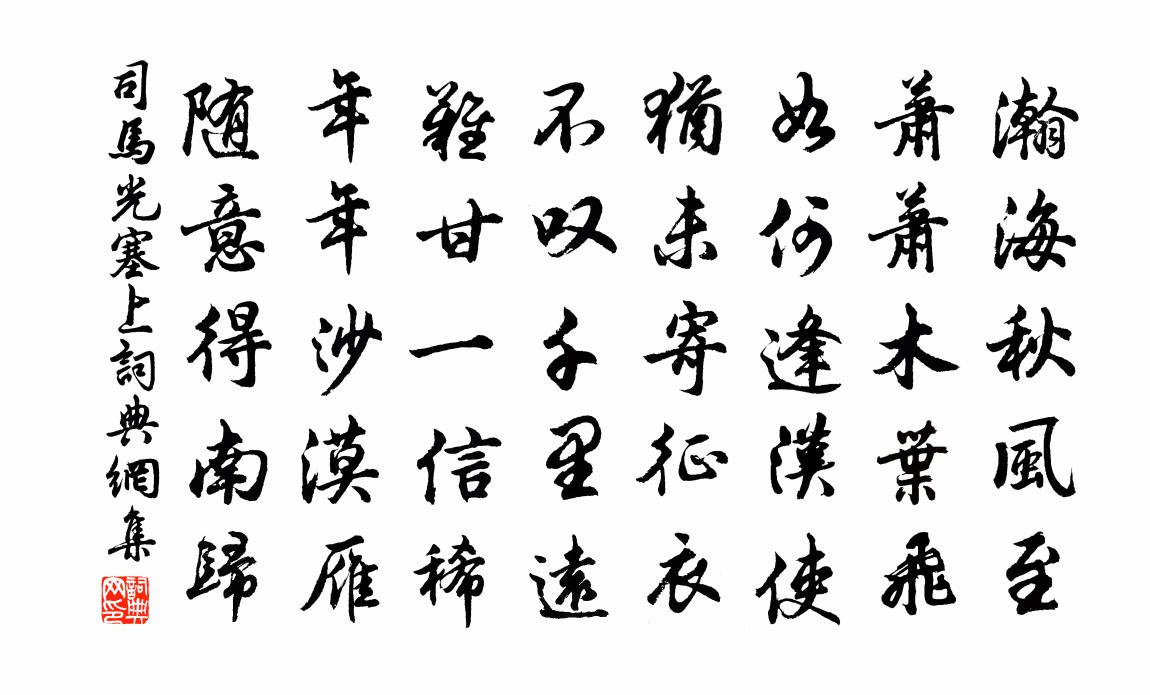 瀚海秋風至
蕭蕭木葉飛
如何逢漢使
猶未寄征衣
不叹千里遠
難甘一信稀
年年沙漠雁
随意得南歸
司馬光塞上詞典網集
詞典网印